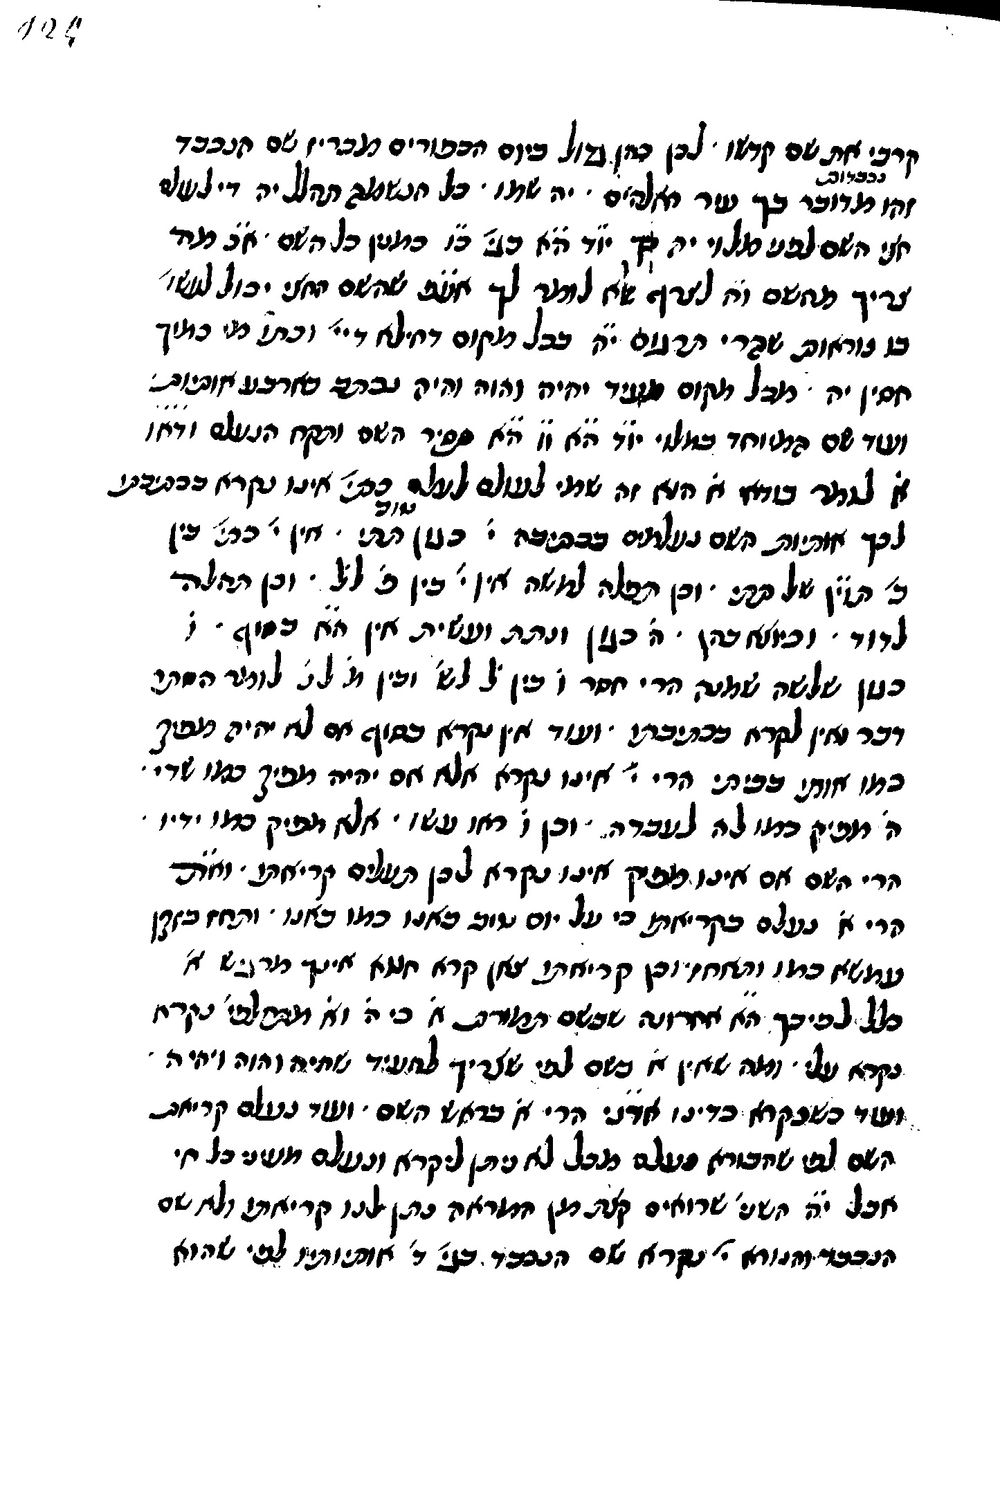 124
קרבי את שם קדשו · לכן כהן גדול ביום הכפורים מכריז שם הנכבד
נכבדות
זהו מדובר בך עיר האלהים · יה שמו · כל הנשמה תהלל יה די לעולם
חצי השם לפני מלוי יה יו̈ד ה̈א בגי׳ כ̈ו כמנין כל השם · א̈כ מה
צריך מהשם ו̈ה לצרף ש̈א לומר לך א̈עפ שהשם החצי יכול לעשו׳
בו נוראות שהרי תרגום י̈ה בכל מקום דחילא דיי׳ וכתו׳ מי כמוך
חסין יה · מכל מקום מעיד יהיה והוה והיה נכתב בארבע אותיות
ועוד שם המיוחד במלוי יו̈ד ה̈א ו̈ו ה̈א חסיר השם והקח הנעלם ודאו
א̇ לומר בורא א̇ הוא זה שמי לעולם לעלם כתי׳ אינו נקרא ככתיבתו
טוב
לכך אותיות השם נעלמים בכתיבה י׳ כגון התני · אין י׳ כתי׳ בין
ב׳ תו̈ין של התני · וכן תפלה למשה אין י׳ בין פ׳ לל · וכן תהלה
לדוד · וכיוצא בהן · ה̇ כגון ונתת ועשית אין ה̈א בסוף · ו̇
כגון שלשה שמנה הרי חסר ו̇ בין ל׳ לש׳ ובין מ̇ לנ̇ לומר הסתר
דבר ואין לקרא ככתיבתו · ועוד אין נקרא בסוף אם לא יהיה מפיק
כמו אותי בביתי הרי י׳ אינו נקרא אלא אם יהיה מפיק כמו שדי ·
ה̇ מפיק כמו לה לעבדה · וכן ו̇ ראו עשו · אלא מפיק כמו ידיו ·
הרי השם אם אינו מפיק אינו נקרא לכן תעלים קריאתו · וא̈ת
הרי א̇ נעלם בקריאתו כי על יום טוב באנו כמו באנו · ותחז בזקן
עמשא כמו ותאחז וכן קריאתו צאן קרא חטא אינך מרגיש א̇
כלל לפיכך ה̈א אחרונה שבשם תמורת א̇ כי ה̇ וא̇ נקרא
נקרא עלי · ומה שאין א̇ בשם לפי שצריך להעיד שהיה והוה ויהיה ·
ועוד כשנקרא בדינו אדני הרי א̇ בראש השם · ועוד נעלם קריאת
השם לפי שהבורא נעלם מכל לא ניתן ליקרא ונעלם מעיני כל חי
אבל י̈ה השני׳ שרואים קצת מן המראה נתן לנו קריאתו ולא שם
הנכבד והנורא י׳ נקרא שם הנכבד בגי׳ ד̇ אותיותיו לפי שהוא